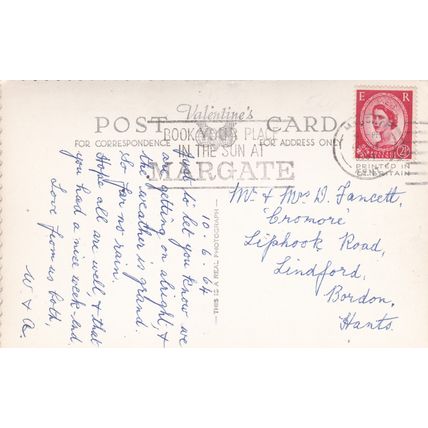 Valentine's
POST CARD
FOR CORRESPONDENCE
FOR ADDRESS ONLY
BOOK YOUR PLACE
IN THE SUN AT
MARGATE
E R
2½
PRINTED IN
BRITAIN
THIS IS A REAL PHOTOGRAPH
10.6.64
Just to let you know we
are getting on alright, &
the weather is grand.
So far no rain.
Hope all are well, & that
you had a nice week-end.
Love from us both,
W & A.
Mr & Mrs D. Fancett,
"Cromore"
Liphook Road,
Lindford,
Bordon,
Hants.